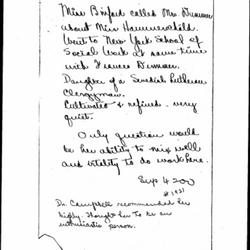 Miss Binford called Mrs. Dummer
about Miss Hammerschild.
Went to New York School of
Social Work at same time
with Frances Dummer.
Daughter of a Swedish Lutheran
Clergyman.
Cultivated & refined. very
quiet.
Only question would
be her ability to mix well
and vitality to do work here.
Sep 4 200
1921
Dr. Campbell recommended her
highly. Thought her to be an
enthusiastic person.